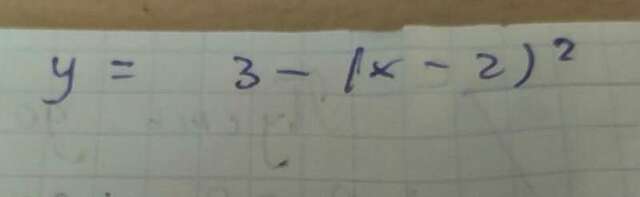 y = 3 - (x - 2)²